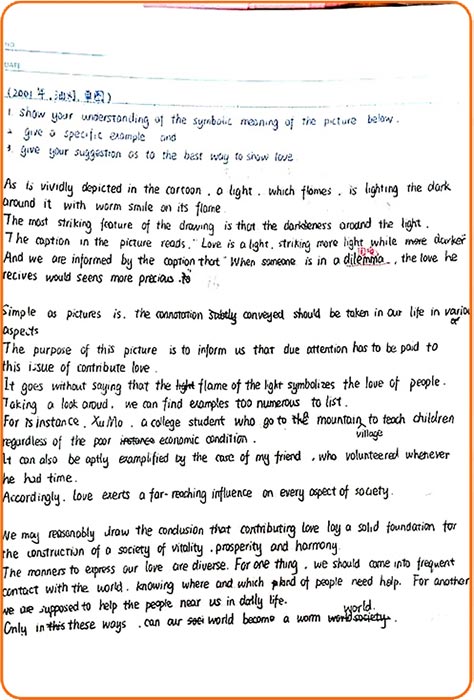 NO.
DATE
(2001年,油灯,单图)
1. show your understanding of the symbolic meaning of the picture below.
2. give a specific example and
3. give your suggestion as to the best way to show love.
As is vividly depicted in the cartoon, a light, which flames, is lighting the dark
around it with warm smile on its flame.
The most striking feature of the drawing is that the darkeness around the light.
The caption in the picture reads, "Love is a light, striking more light while more darker
And we are informed by the caption that "When someone is in a dilemma, the love he
recives would seens more precious.
Simple as pictures is, the connotation subtly conveyed should be taken in our life in various
aspects
The purpose of this picture is to inform us that due attention has to be paid to
this issue of contribute love.
It goes without saying that the light flame of the light symbolizes the love of people.
Taking a look aroud, we can find examples too numerous to list.
For is instance, Xu Mo, a college student who go to the mountain village to teach children
regardless of the poor instance economic condition.
It can also be aptly examplified by the case of my friend, who volunteered whenever
he had time.
Accordingly, love exerts a far-reaching influence on every aspect of society.
We may reasonably draw the conclusion that contributing love lay a solid foundation for
the construction of a society of vitality, prosperity and harmony.
The manners to express our love are diverse. For one thing, we should come into frequent
contact with the world, knowing where and which kind of people need help. For another
we are supposed to help the people near us in daily life.
Only in this these ways, can our soci world become a warm world society. world.